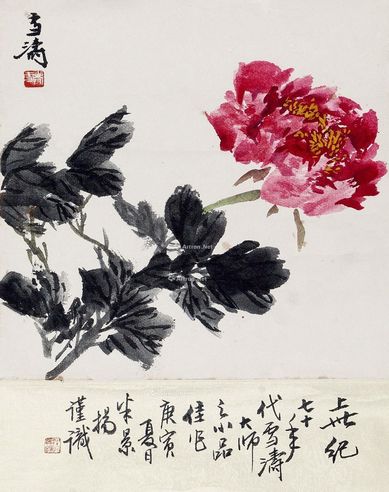 雪濤
上世纪
七十年
代雪濤
大师
之小品
佳作
庚寅
夏日
米景
揚
谨識
Artron.Net